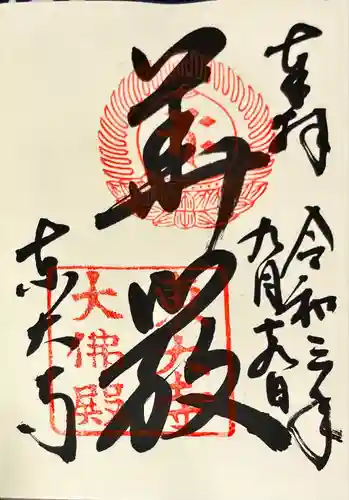 奉拝
令和三年
九月十九日
華嚴
東大寺
大佛殿
東大寺